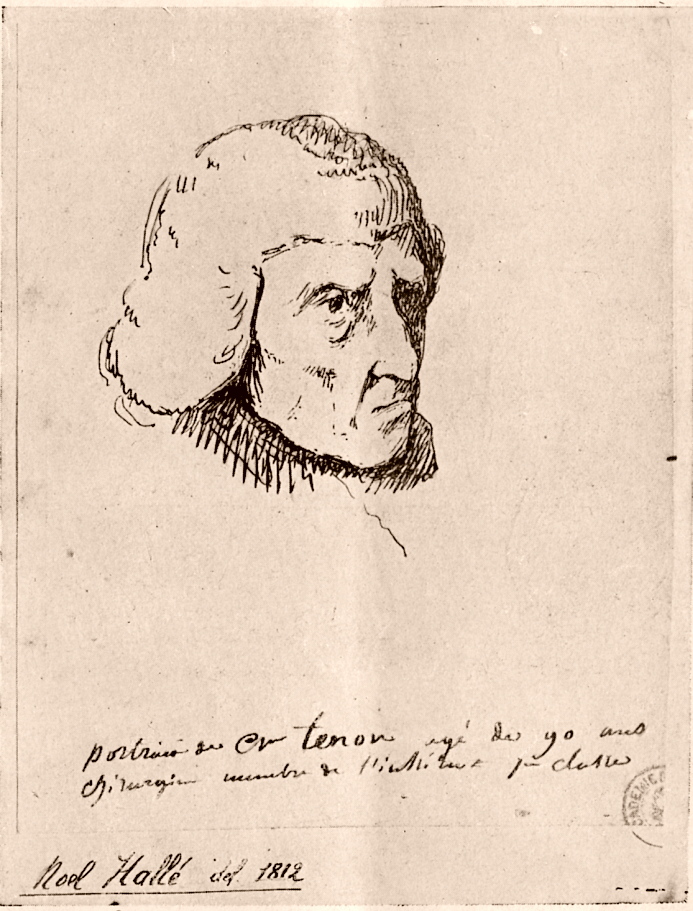 portrait de Cr tenon agé de 90 ans
chirurgien membre de l'institut pr classe
Noel Hallé del. 1812
ADEMIC